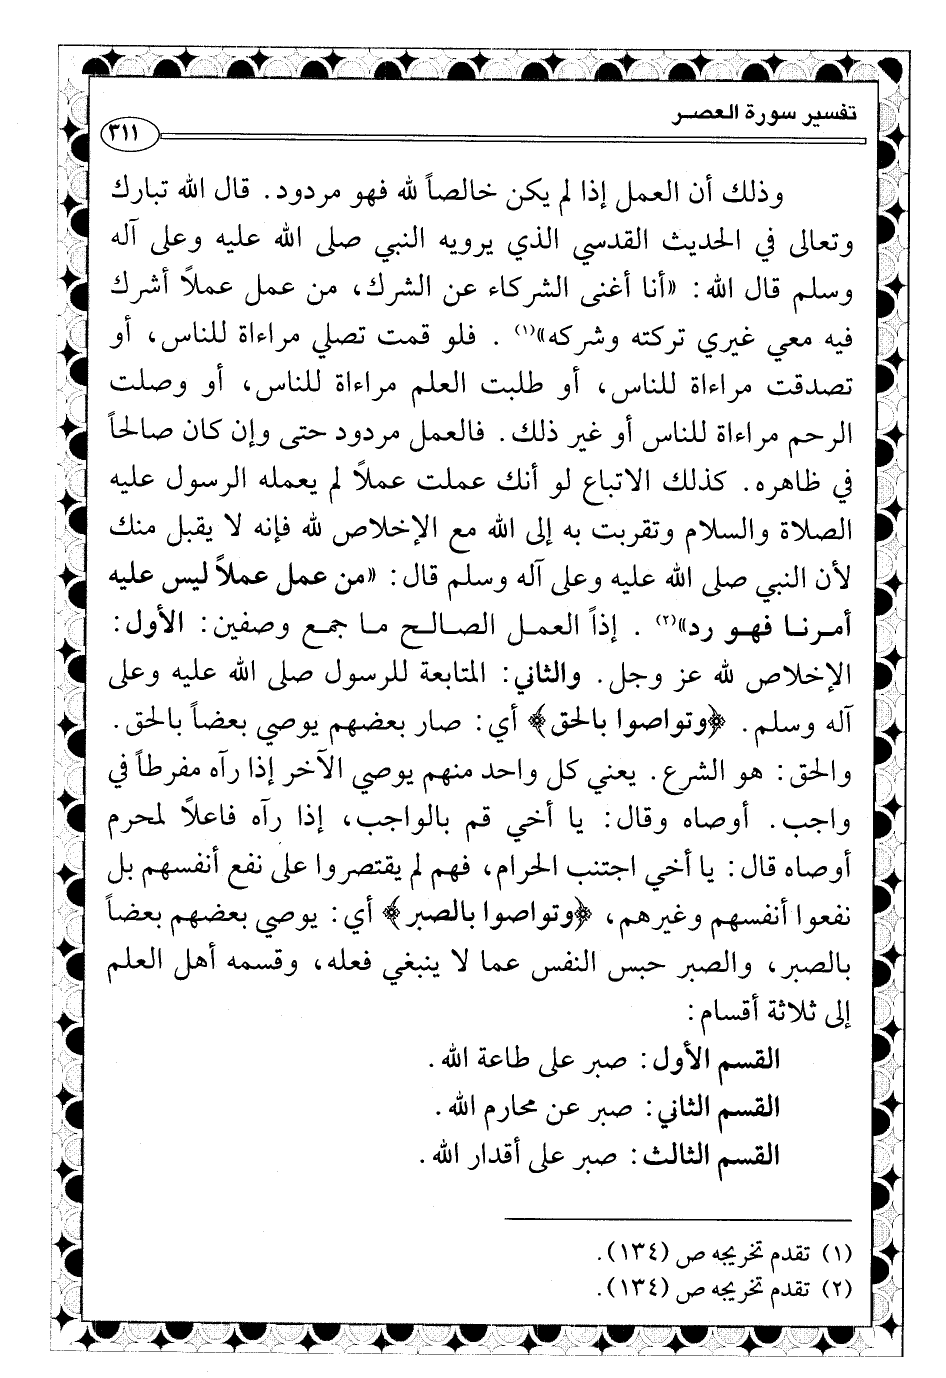 تفسير سورة العصر
٣١١
وذلك أن العمل إذا لم يكن خالصاً لله فهو مردود. قال الله تبارك
وتعالى في الحديث القدسي الذي يرويه النبي صلى الله عليه وعلى آله
وسلم قال الله: «أنا أغنى الشركاء عن الشرك، من عمل عملاً أشرك
فيه معي غيري تركته وشركه»(١) . فلو قمت تصلي مراءاة للناس، أو
تصدقت مراءاة للناس، أو طلبت العلم مراءاة للناس، أو وصلت
الرحم مراءاة للناس أو غير ذلك. فالعمل مردود حتى وإن كان صالحاً
في ظاهره. كذلك الاتباع لو أنك عملت عملاً لم يعمله الرسول عليه
الصلاة والسلام وتقربت به إلى الله مع الإخلاص لله فإنه لا يقبل منك
لأن النبي صلى الله عليه وعلى آله وسلم قال: «من عمل عملاً ليس عليه
أمرنا فهو رد»(٢) . إذاً العمل الصالح ما جمع وصفين: الأول:
الإخلاص لله عز وجل. والثاني: المتابعة للرسول صلى الله عليه وعلى
آله وسلم. ﴿وتواصوا بالحق﴾ أي: صار بعضهم يوصي بعضاً بالحق.
والحق: هو الشرع. يعني كل واحد منهم يوصي الآخر إذا رآه مفرطاً في
واجب. أوصاه وقال: يا أخي قم بالواجب، إذا رآه فاعلاً لمحرم
أوصاه قال: يا أخي اجتنب الحرام، فهم لم يقتصروا على نفع أنفسهم بل
نفعوا أنفسهم وغيرهم، ﴿وتواصوا بالصبر﴾ أي: يوصي بعضهم بعضاً
بالصبر، والصبر حبس النفس عما لا ينبغي فعله، وقسمه أهل العلم
إلى ثلاثة أقسام:
القسم الأول: صبر على طاعة الله.
القسم الثاني: صبر عن محارم الله.
القسم الثالث: صبر على أقدار الله.
(١) تقدم تخريجه ص (١٣٤).
(٢) تقدم تخريجه ص (١٣٤).